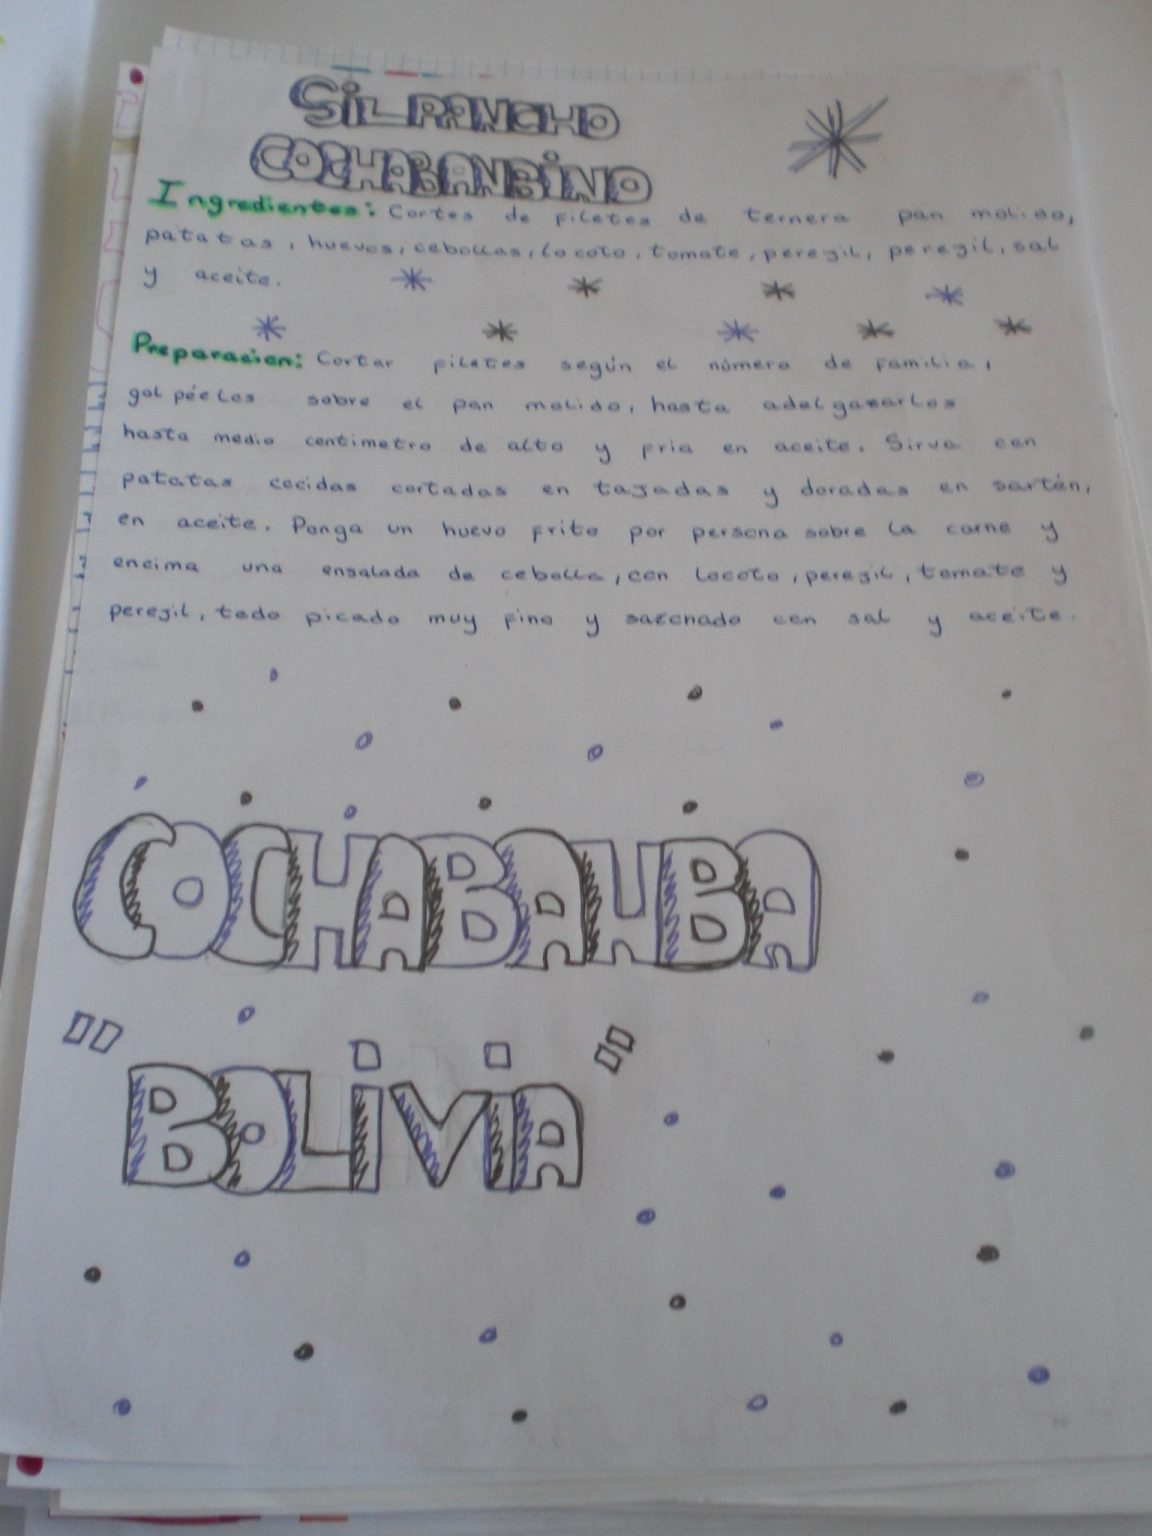 SILPANCHO
COCHABANBINO
Ingredientes: Cortes de filetes de ternera pan molido,
patatas, huevos, cebollas, locoto, tomate, perejil, perejil, sal
y aceite.
Preparacion: Cortar filetes según el número de familia,
golpéelos sobre el pan molido, hasta adelgazarlos
hasta medio centimetro de alto y fria en aceite. Sirva con
patatas cocidas cortadas en tajadas y doradas en sartén,
en aceite. Ponga un huevo frito por persona sobre la carne y
encima una ensalada de cebolla, con locoto, perejil, tomate y
perejil, todo picado muy fino y sazonado con sal y aceite.
COCHABAHBA
"BOLIVIA"